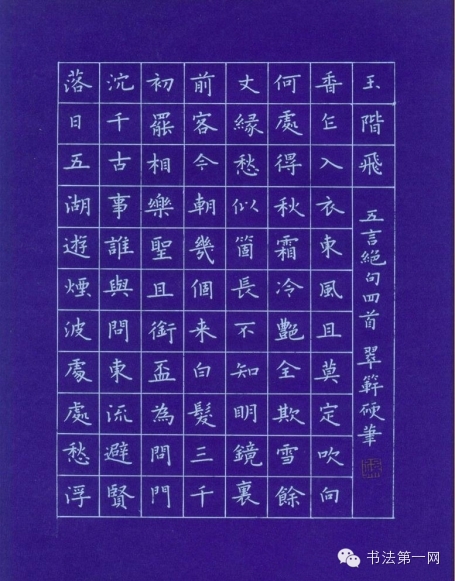 落日五湖遊煙波處處愁浮
沉千古事誰與問東流避賢
初罷相樂聖且銜盃為問門
前客今朝幾個来白髮三千
丈緣愁似箇長不知明鏡裏
何處得秋霜冷艷全欺雪餘
香乍入衣東風且莫定吹向
玉階飛
五言絕句四首 翠簳硬筆
书法第一网